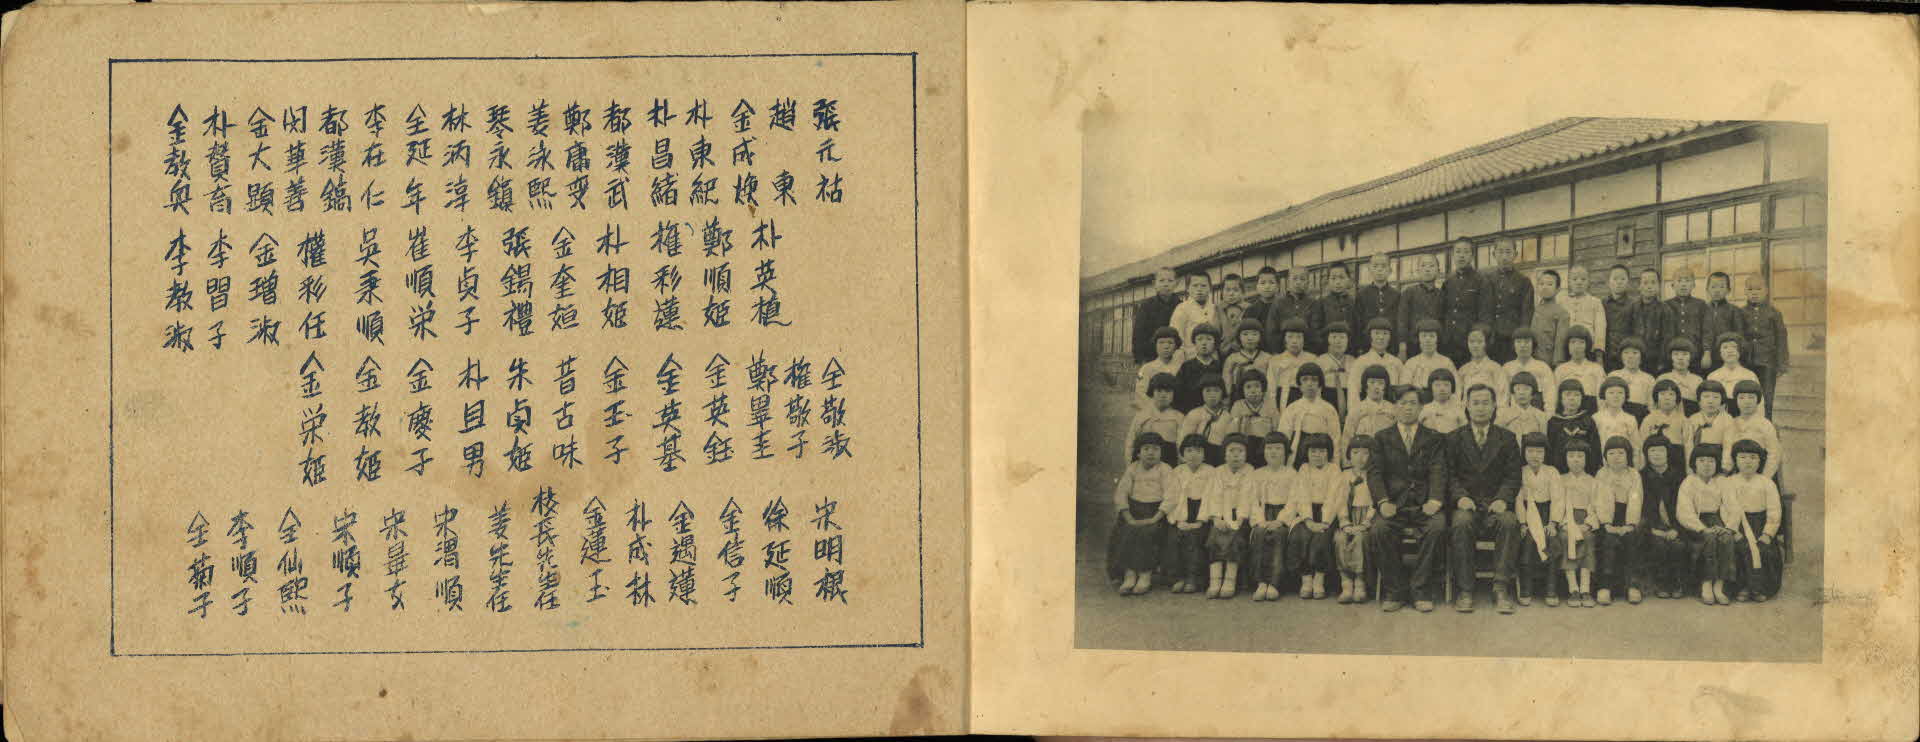 張元祜
趙東
金成煥
朴東紀
朴昌緒
都漢武
鄭庸燮
姜泳熙
琴永鎮
林炳淳
全延年
李在仁
都漢鎬
閔華善
金大顕
朴賛育
金教奥
朴英植
鄭順姫
権彩蓮
朴相姫
金奎姮
張錫禮
李貞子
崔順栄
吳秉順
權彩任
金璔淑
李習子
李教淑
全敬淑
権敬子
鄭畢圭
金英鈺
金英基
金玉子
昔古味
朱貞姫
朴且男
金慶子
金教姫
金栄姫
宋明根
徐延順
金信子
金遇蓮
朴成林
金蓮玉
校長先生在
姜先生在
宋渭順
宋畢女
宋順子
全仙熙
李順子
全菊子